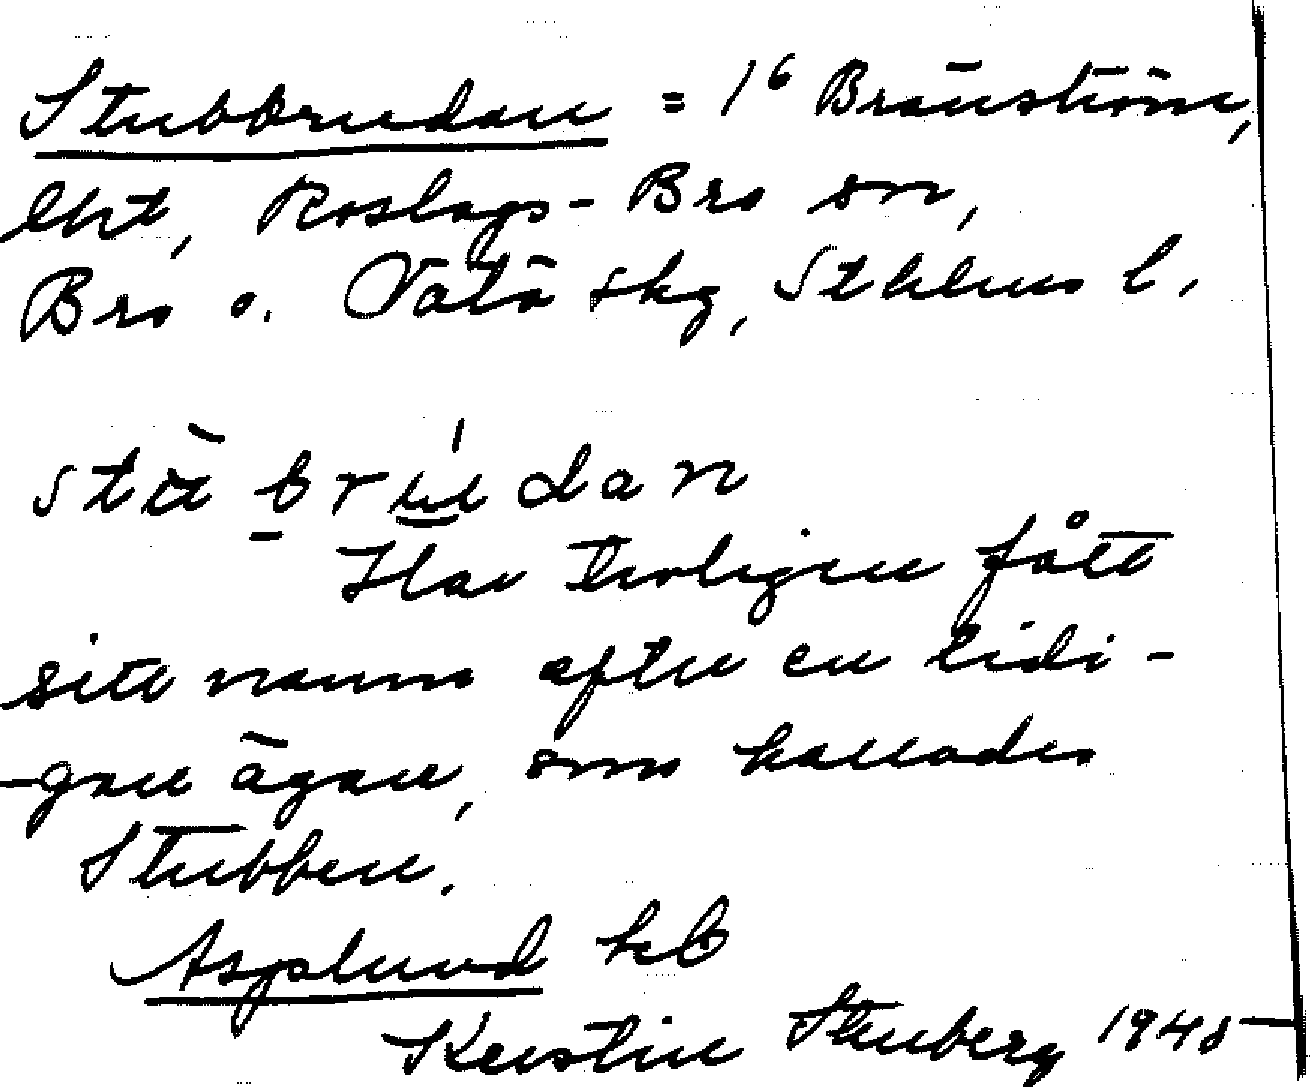 Stubbrudan = 1⁶ Brännström,
lht, Roslags-Bro sn,
Bro o. Vätö skg, Sthlms l.
stubrudan
Har troligen fått
sitt namn efter en tidi-
gare ägare, som kallades
Stubben.
Asplund
Kerstin Stenberg 1948